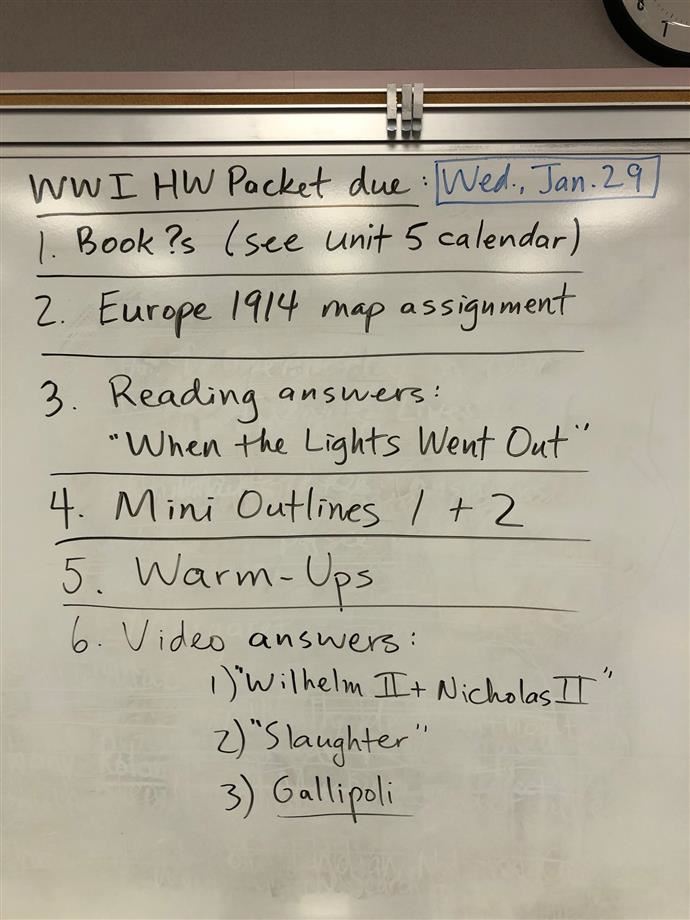 WWI HW Packet due: Wed., Jan. 29
1. Book ?s (see unit 5 calendar)
2. Europe 1914 map assignment
3. Reading answers:
"When the Lights Went Out"
4. Mini Outlines 1 + 2
5. Warm-Ups
6. Video answers:
1) "Wilhelm II + Nicholas II"
2) "Slaughter"
3) Gallipoli